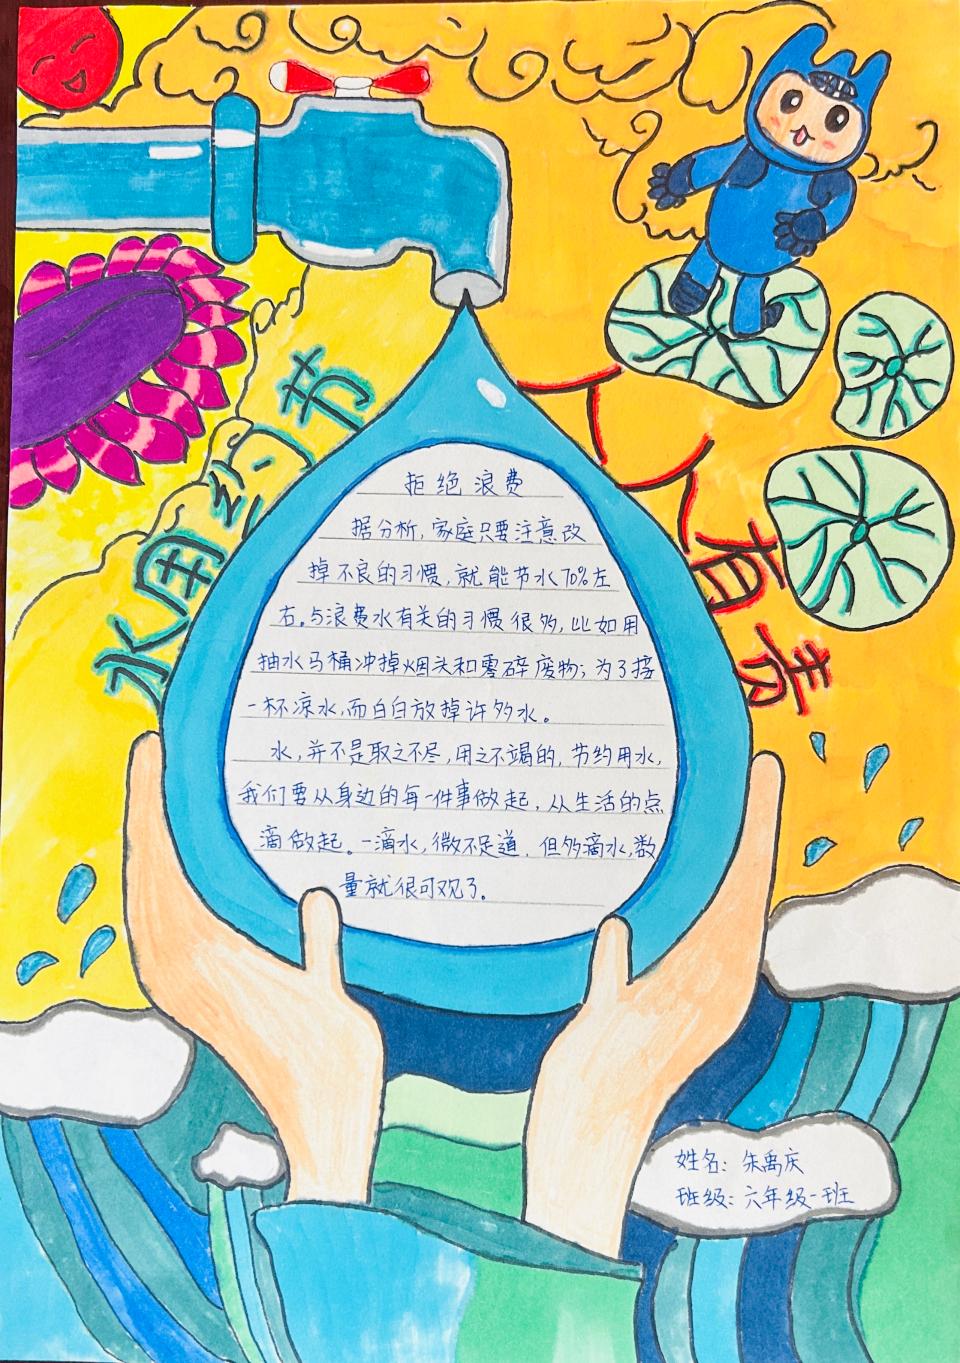 节约用水
有责
拒绝浪费
据分析，家庭只要注意改
掉不良的习惯，就能节水70%左
右。与浪费水有关的习惯很多，比如用
抽水马桶冲掉烟头和零碎废物；为了接
一杯凉水，而白白放掉许多水。
水，并不是取之不尽，用之不竭的，节约用水，
我们要从身边的每一件事做起，从生活的点
滴做起。一滴水，微不足道，但多滴水，数
量就很可观了。
姓名：朱禹庆
班级：六年级一班